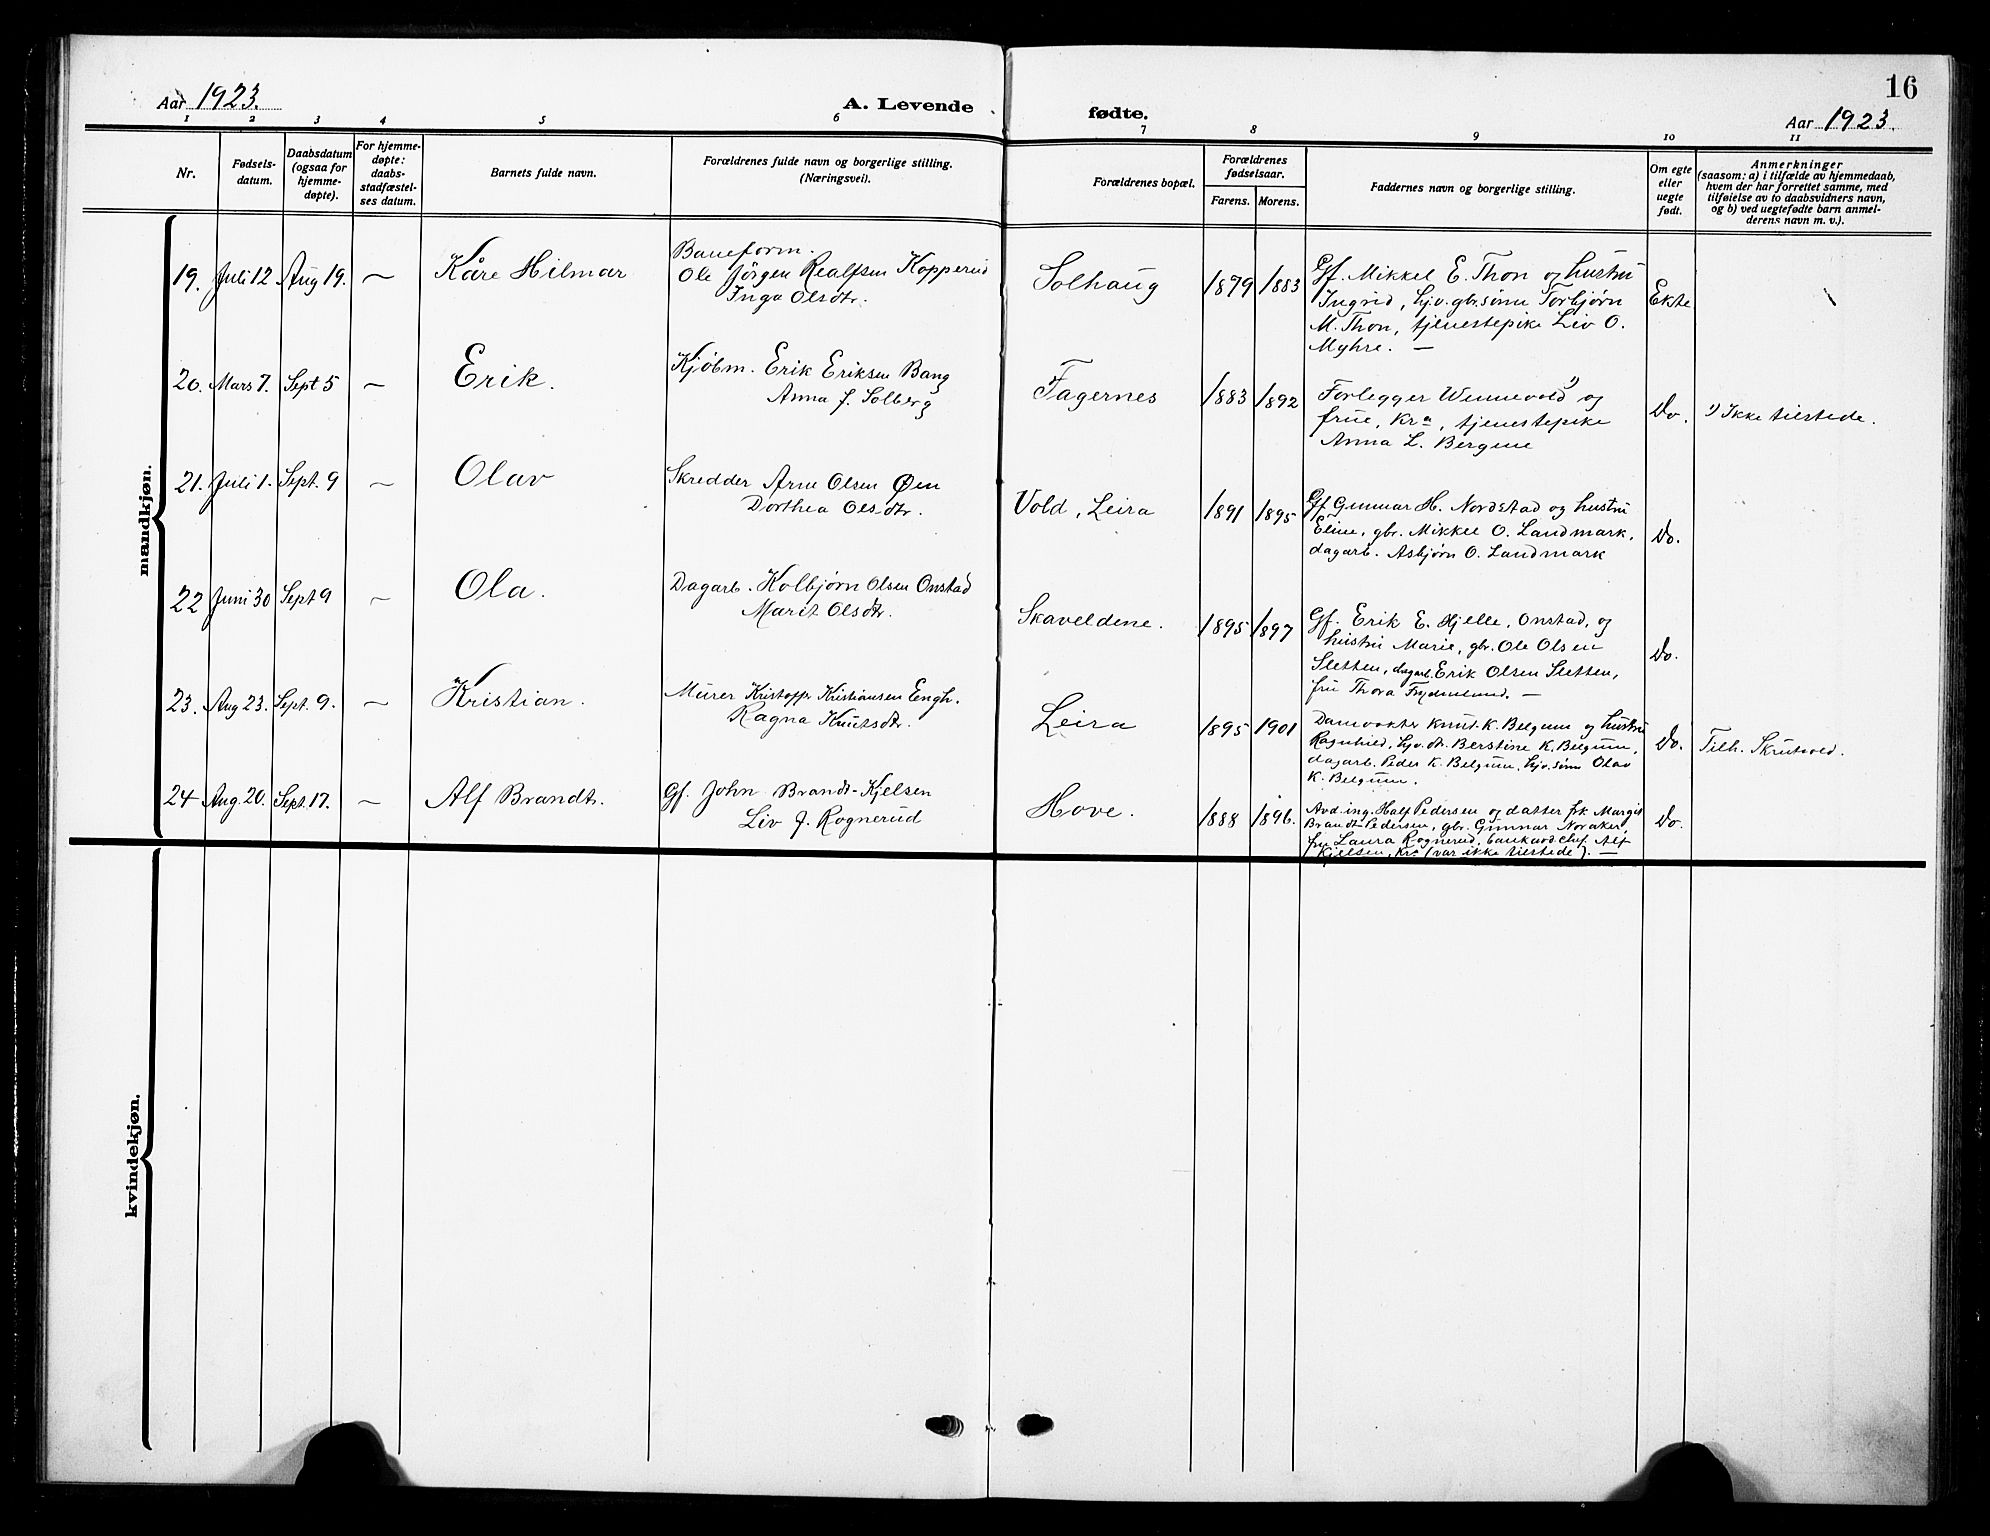 16
Aar 1923.
A. Levende fødte.
Aar 1923.
1 2 3 4 5 6 7 8 9 10 11
Nr.
Fødsels-
datum.
Daabsdatum
(ogsaa for
hjemme-
døpte).
For hjemme-
døpte:
daabs-
stadfæstel-
ses datum.
Barnets fulde navn.
Forældrenes fulde navn og borgerlige stilling.
(Næringsvei).
Forældrenes bopæl.
Forældrenes
fødselsaar.
Farens. Morens.
Faddernes navn og borgerlige stilling.
Om egte
eller
uegte
født.
Anmerkninger
(saasom: a) i tilfælde av hjemmedaab,
hvem der har forrettet samme, med
tilføielse av to daabsvidners navn,
og b) ved uegtefødte barn anmel-
derens navn m. v.).
mandkjøn.
19. Juli 12 Aug 19. — Kåre Hilmar
Baneform.
Ole Jörgen Realfsen Kopperud
Inga Olsdtr.
Solhaug 1879 1883
Gf. Mikkel E. Thon og hustru
Ingrid, hjv. gbr.sönn Torbjörn
M. Thon, tjenestepike Liv O.
Myhre. —
Ekte
20. Mars 7. Sept 5 — Erik.
Kjöbm. Erik Eriksen Bang
Anna J. Solberg
Fagernes 1883 1892
Forlegger Wennevold 1) og
frue, Kra, tjenestepike
Anna L. Bergene
Do. 1) Ikke tilstede.
21. Juli 1. Sept. 9 — Olav
Skredder Arne Olsen Øen
Dorthea Olsdtr.
Vold, Leira 1891 1895
Gf Gunnar H. Nordstad og hustru
Eline, gbr. Mikkel O. Landmark,
dagarb. Asbjørn O. Landmark
Do.
22 Juni 30 Sept 9 — Ola.
Dagarb. Kolbjørn Olsen Onstad
Marit Olsdtr.
Skaveldene. 1895 1897
Gf. Erik E. Hjelle, Onstad, og
hustru Marie, gbr. Ole Olsen
Sletten, dagarb. Erik Olsen Sletten,
fru Thora Frydenlund. —
Do.
23. Aug 23. Sept. 9. — Kristian.
Murer Kristoffr Kristiansen Engh.
Ragna Knutsdtr.
Leira 1895 1901
Damvokter Knut K. Belgum og hustru
Ragnhild, hjv. dtr. Berstine K. Belgum,
dagarb. Peder K. Belgum, hjv. sönn Olav
K. Belgum.
Do. Tilh. Skrutvold.
24 Aug. 20. Sept. 17. — Alf Brandt.
Gf. John Brandt-Kjelsen
Liv J. Rognerud
Hove. 1888 1896.
Avd.ing. Half Pedersen og datter frk Margit
Brandt Pedersen, gbr. Gunnar Noraker,
frk Laura Rognerud, bankavd.chef Alf
Kjelsen, Kra (var ikke tilstede). —
Do.
kvindekjøn.